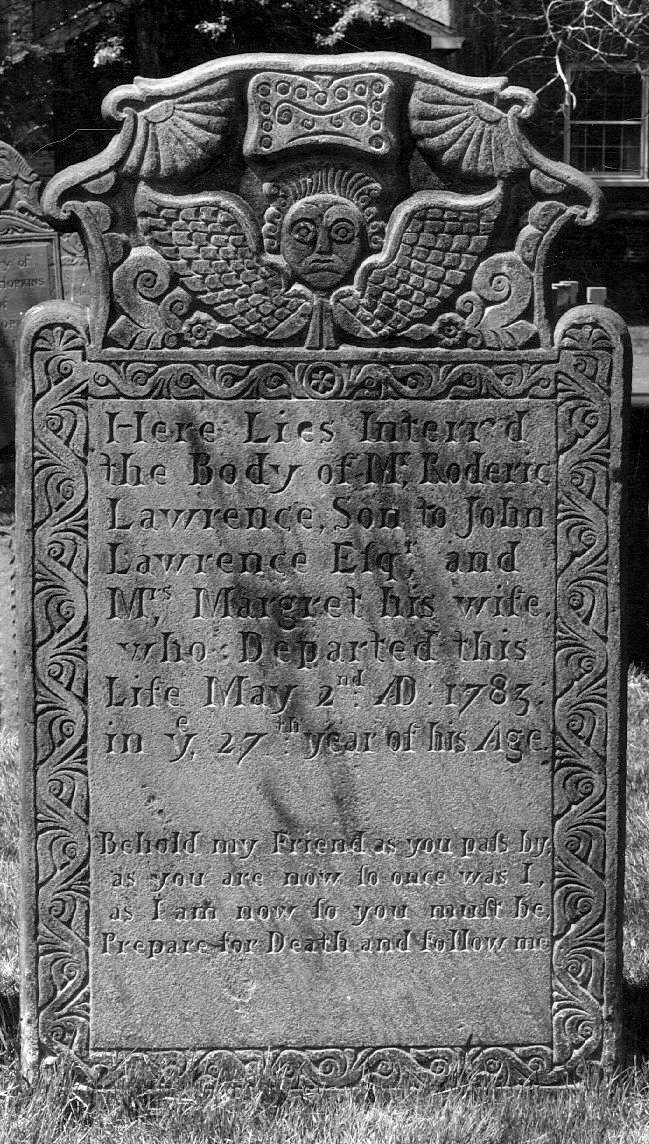 ry of
HOPKINS
of
Here Lies Interr'd
the Body of Mr, Roderic
Lawrence, Son to John
Lawrence Esqr, and
Mrs, Margret his wife,
who Departed this
Life May 2nd AD: 1783;
in ye, 27th year of his Age.
Behold my Friend as you paſs by,
as you are now ſo once was I,
as I am now ſo you muſt be,
Prepare for Death and follow me